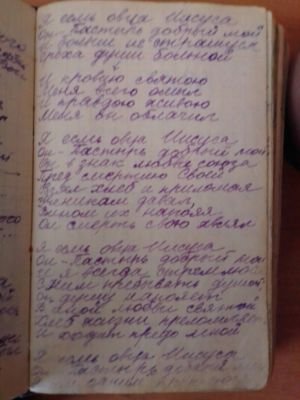 Я есмь овца Иисуса
Он - Пастырь добрый мой
И больше не страшуся
Греха души больной
И кровию святою
Меня всего омыл
И правдою живою
Меня он облачил
Я есмь овца Иисуса
Он - Пастырь добрый мой
в знак любви союза
Пред смертию Своей
Взял хлеб и преломляя
Ученикам давал,
Вином их напояя
Он смерть свою являл
Я есмь овца Иисуса
Он - Пастырь добрый мой
И я всегда стремлюсь
С Ним пребывать душой
Он душу наполняет
любви святой
Хлеб жизни преломляет
И ходит предо мной
Я есмь овца Иисуса
Пастырь добрый